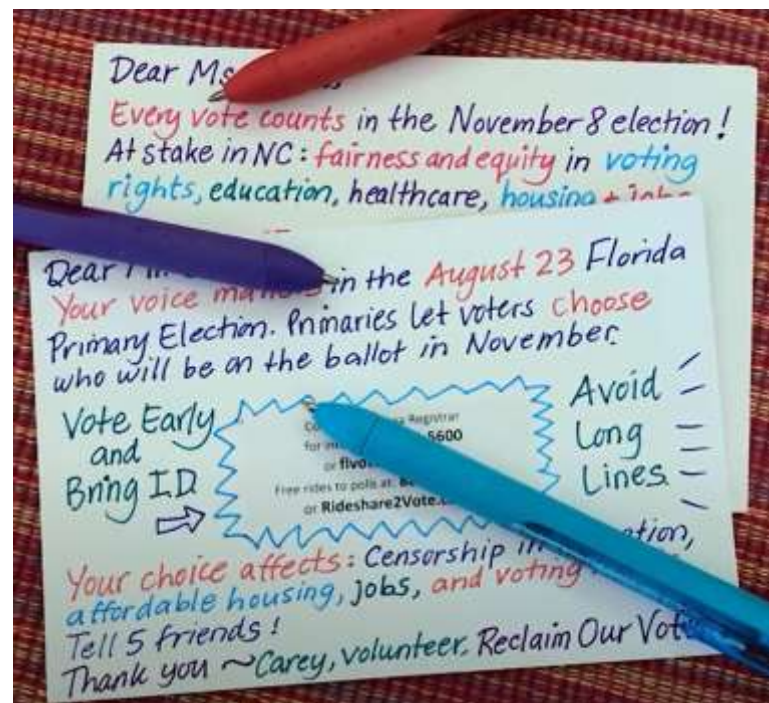 Dear Ms.
Every vote counts in the November 8 election!
At stake in NC: fairness and equity in voting
rights, education, healthcare, housing + jobs
Dear
Your voice in the August 23 Florida
Primary Election. Primaries let voters choose
who will be on the ballot in November.
Vote Early
and
Bring ID
Registrar
for 5600
or
Free rides to polls at:
or Rideshare2Vote.
Avoid
Long
Lines
Your choice affects: Censorship in
affordable housing, jobs, and voting
Tell 5 friends!
Thank you ~Carey, volunteer, Reclaim Our Vote